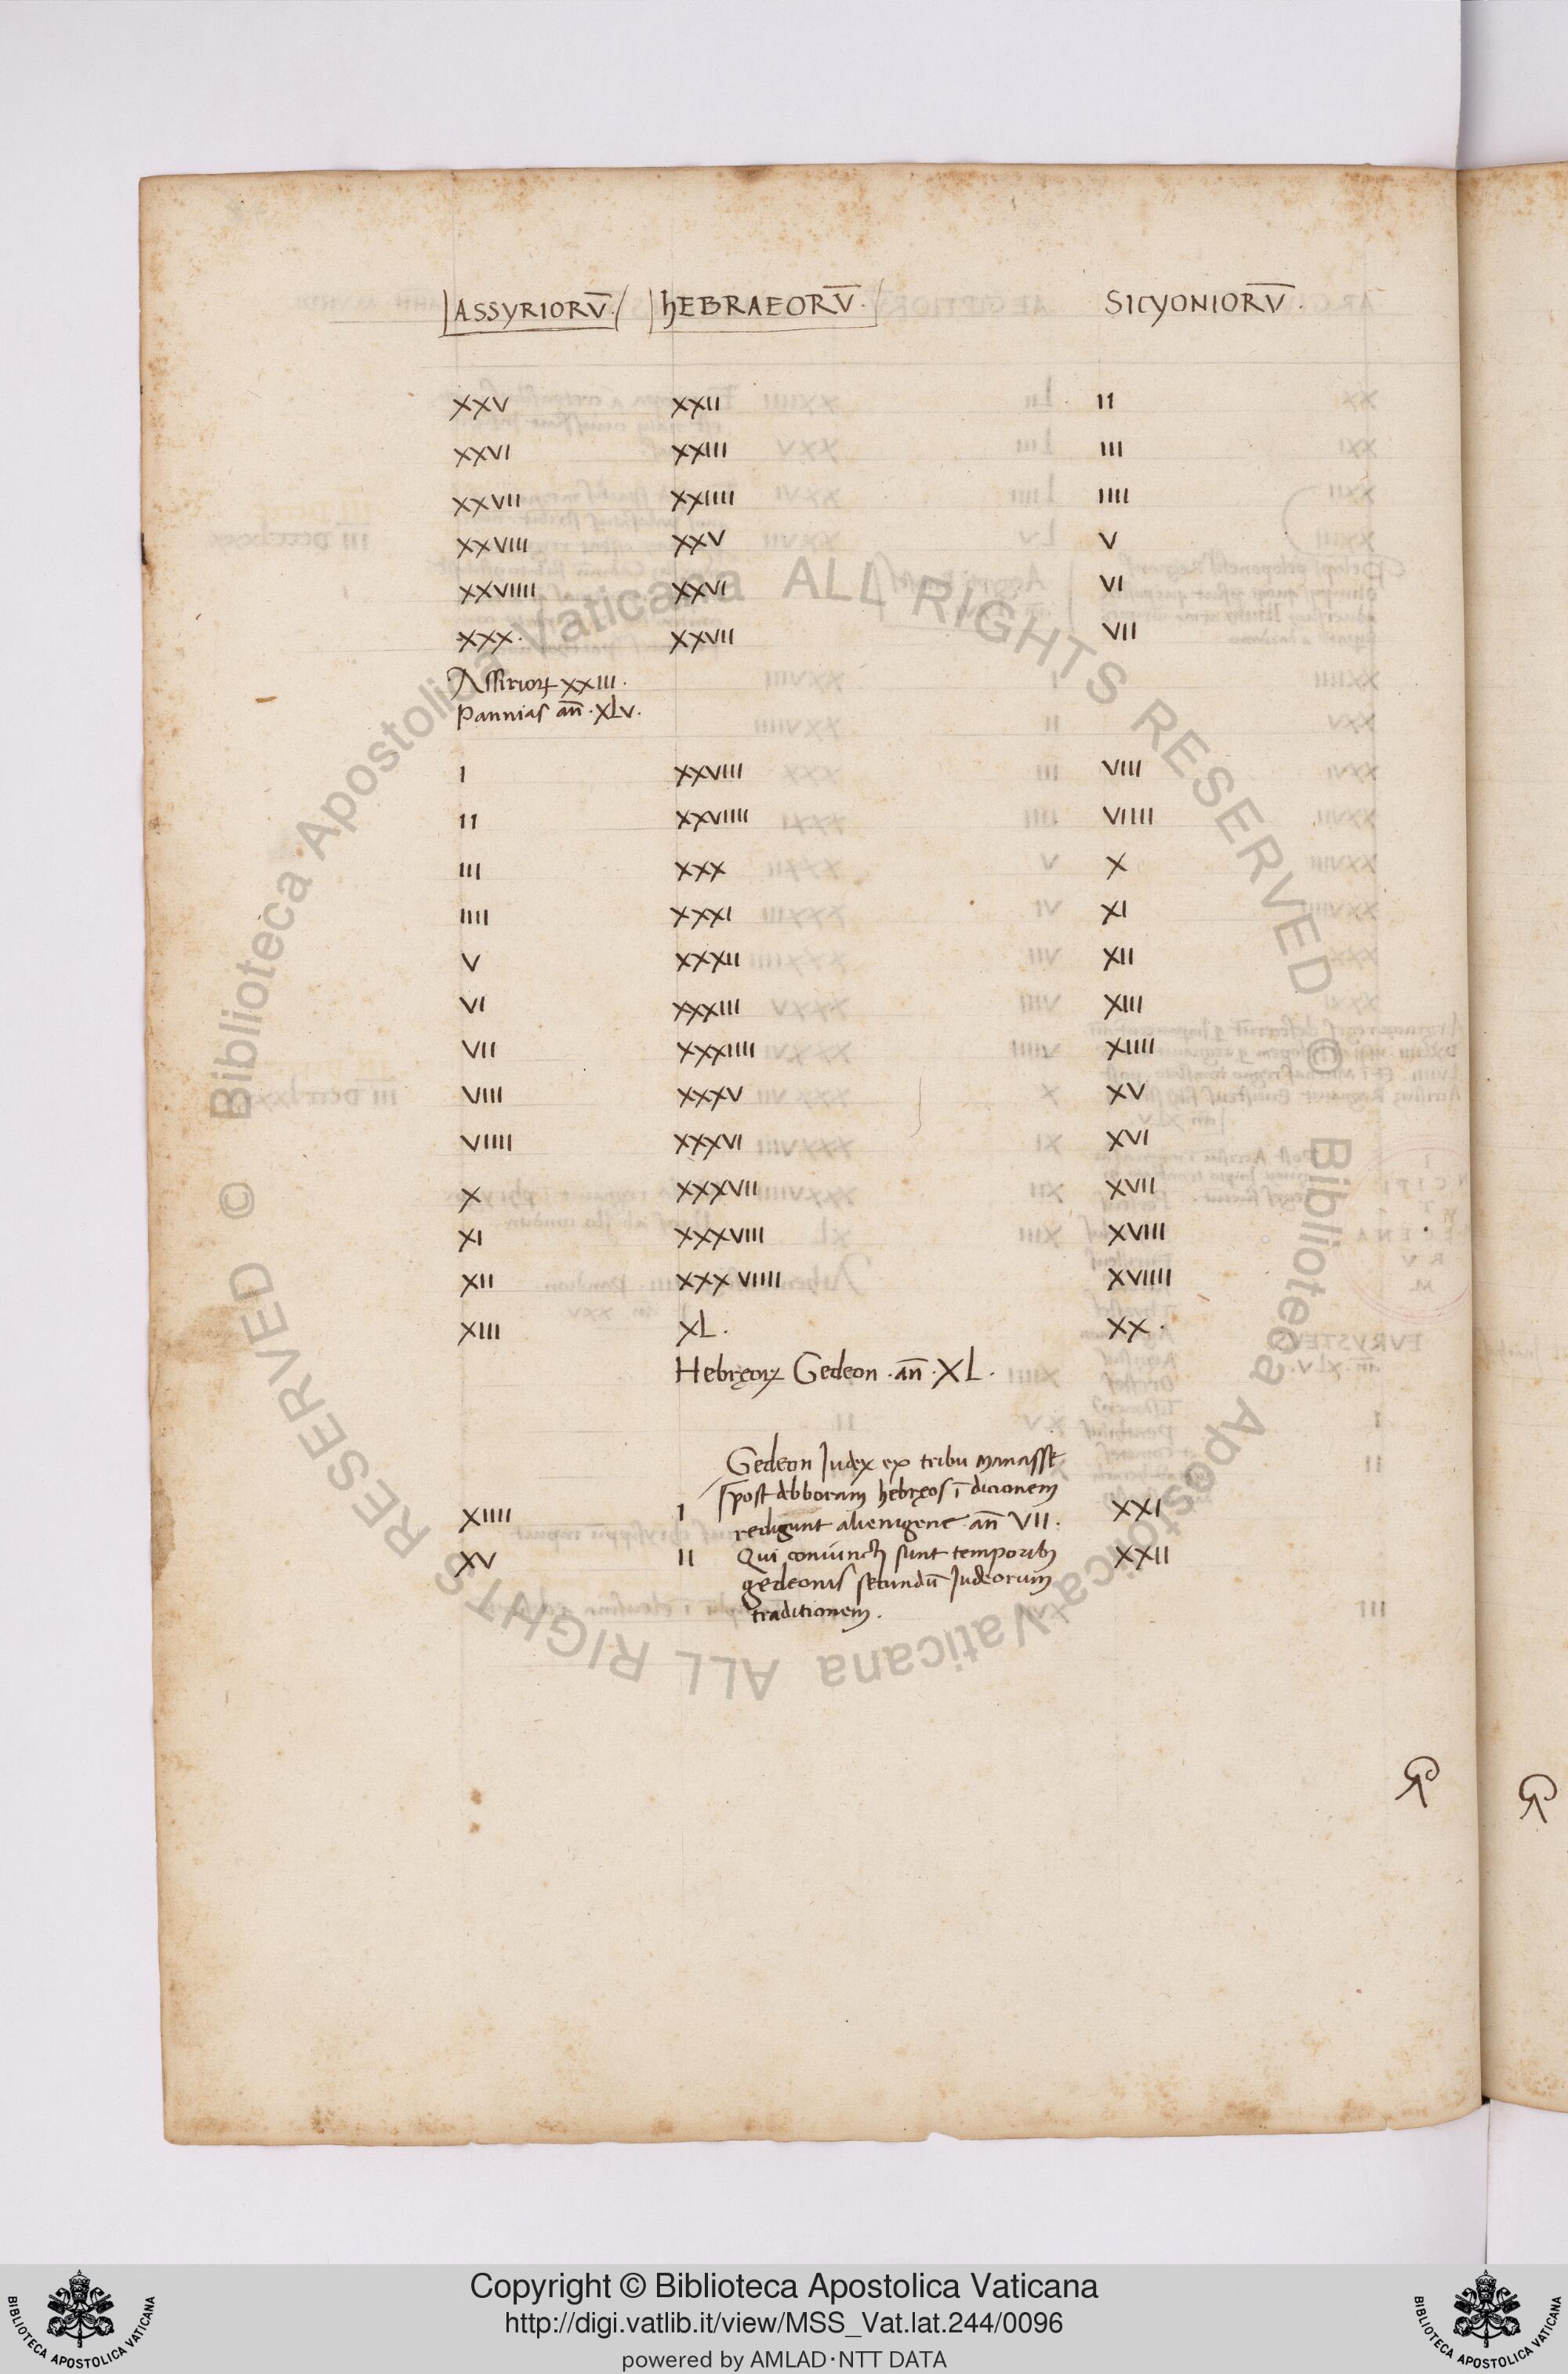 ASSYRIORV̄. HEBRAEORV̄. SICYONIORV̄.
XXV XXII II
XXVI XXIII III
XXVII XXIIII IIII
XXVIII XXV V
XXVIIII XXVI VI
XXX. XXVII VII
Assirioꝝ XXIII.
Pannias an̄. XLV.
I XXVIII VIII
II XXVIIII VIIII
III XXX X
IIII XXXI XI
V XXXII XII
VI XXXIII XIII
VII XXXIIII XIIII
VIII XXXV XV
VIIII XXXVI XVI
X XXXVII XVII
XI XXXVIII XVIII
XII XXXVIIII XVIIII
XIII XL. XX.
Hebręoꝝ Gedeon. an̄. XL.
Gedeon Judex ex tribu manasse
post debboram hebręos ī dicionem
XIIII I redigunt alienigene an̄ VII. XXI
XV II Qui coniuncti sunt temporib; XXII
gedeonis secundū Judeorum
traditionem.
© Biblioteca Apostolica Vaticana ALL RIGHTS RESERVED © Biblioteca Apostolica Vaticana ALL RIGHTS RESERVED
Copyright © Biblioteca Apostolica Vaticana
http://digi.vatlib.it/view/MSS_Vat.lat.244/0096
powered by AMLAD·NTT DATA
BIBLIOTECA APOSTOLICA VATICANA
BIBLIOTECA APOSTOLICA VATICANA